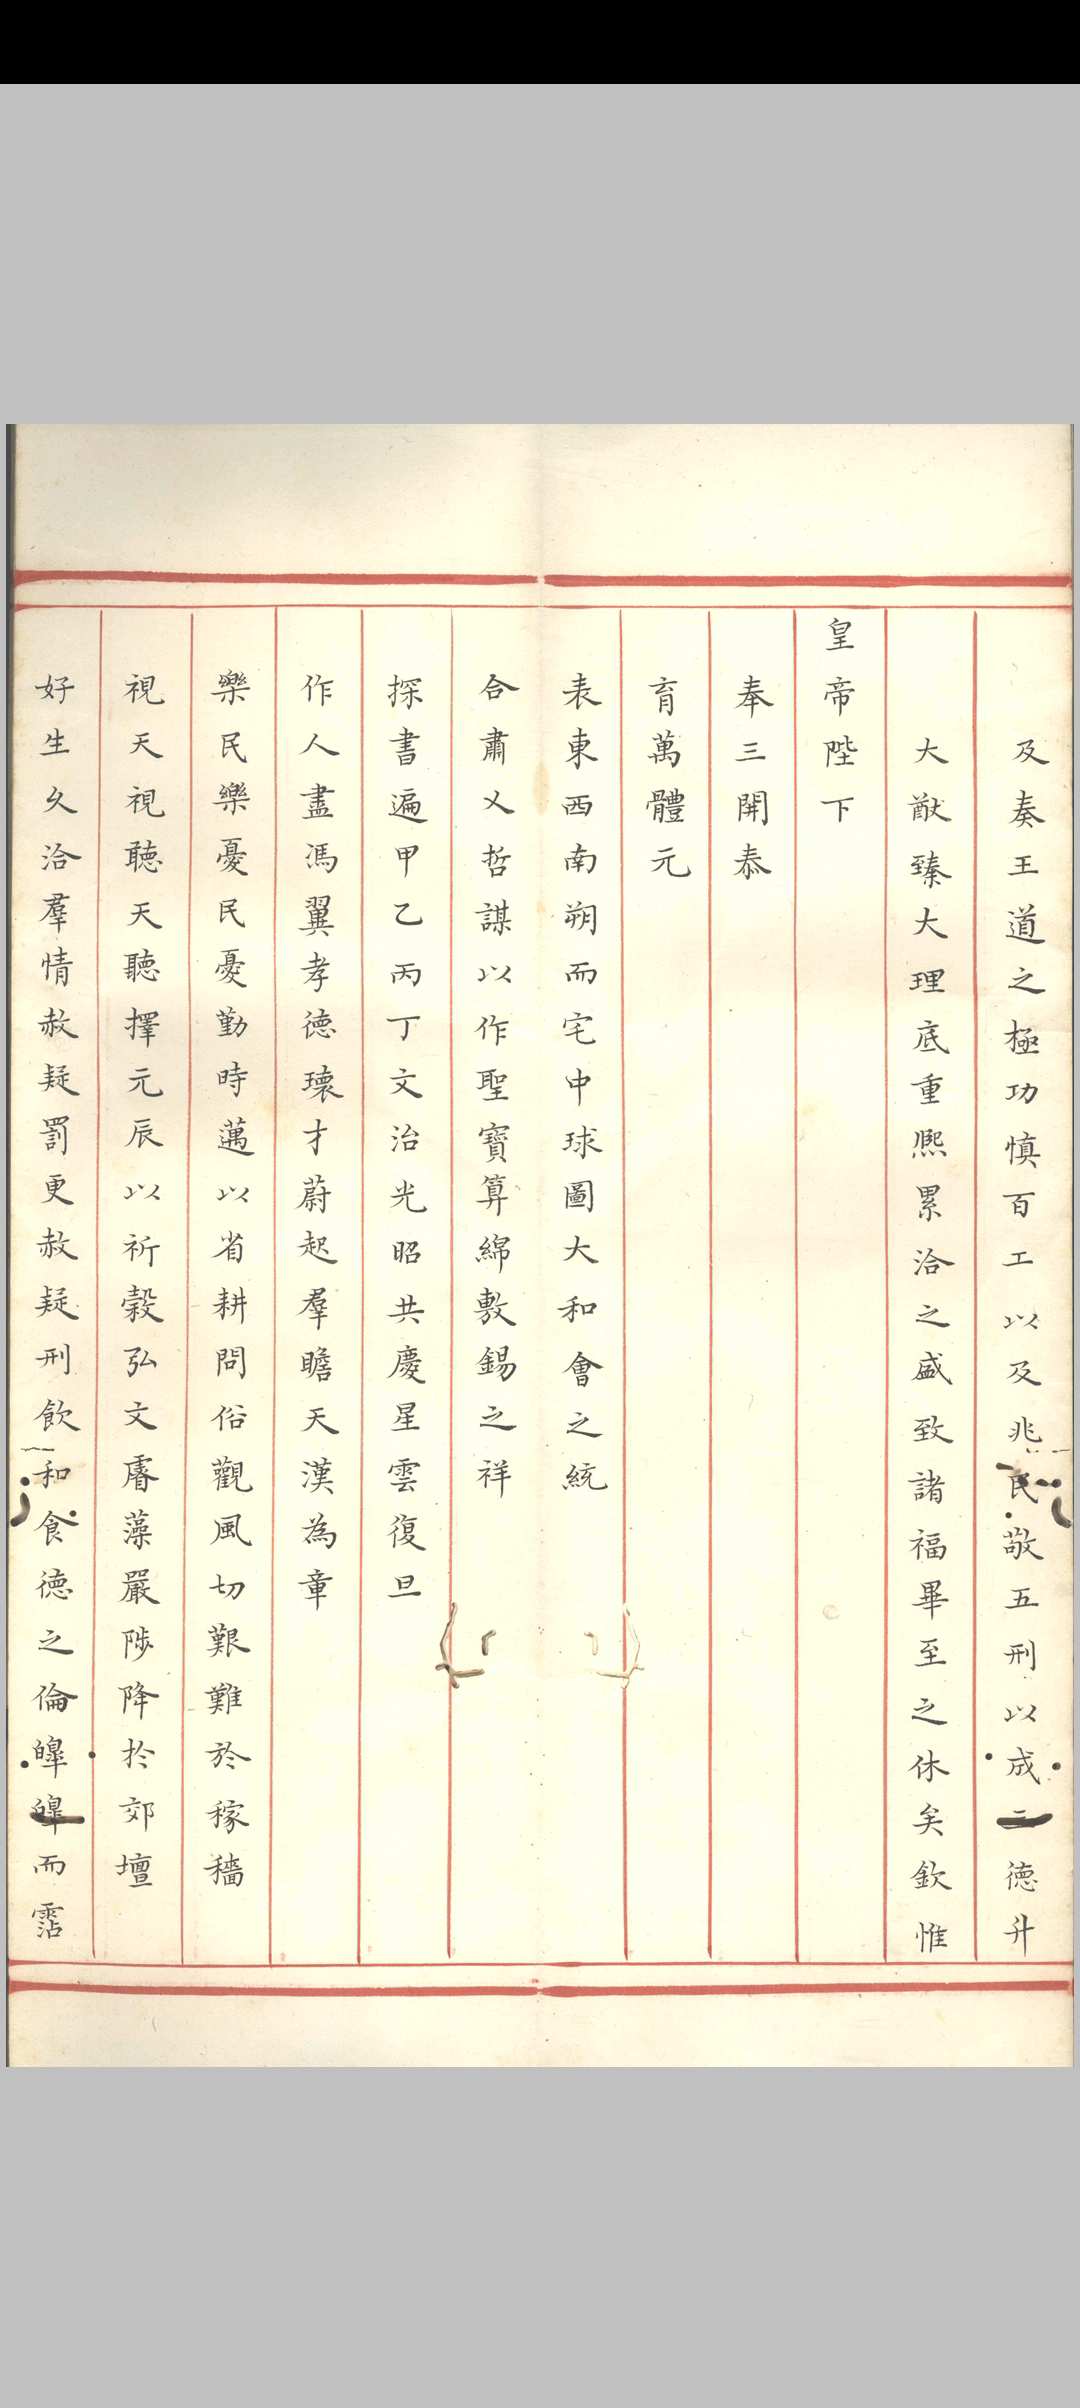 及奏王道之極功慎百工以及兆民敬五刑以成三德升
大猷臻大理底重熙累洽之盛致諸福畢至之休矣欽惟
皇帝陛下
奉三開泰
育萬體元
表東西南朔而宅中球圖大和會之統
合肅乂哲謀以作聖寶算綿敷錫之祥
探書遍甲乙丙丁文治光昭共慶星雲復旦
作人盡馮翼孝德瓌才蔚起羣瞻天漢為章
樂民樂憂民憂勤時邁以省耕問俗觀風切艱難於稼穡
視天視聽天聽擇元辰以祈穀弘文廥藻嚴陟降於郊壇
好生久洽羣情赦疑罰更赦疑刑飲和食德之倫皥皥而霑